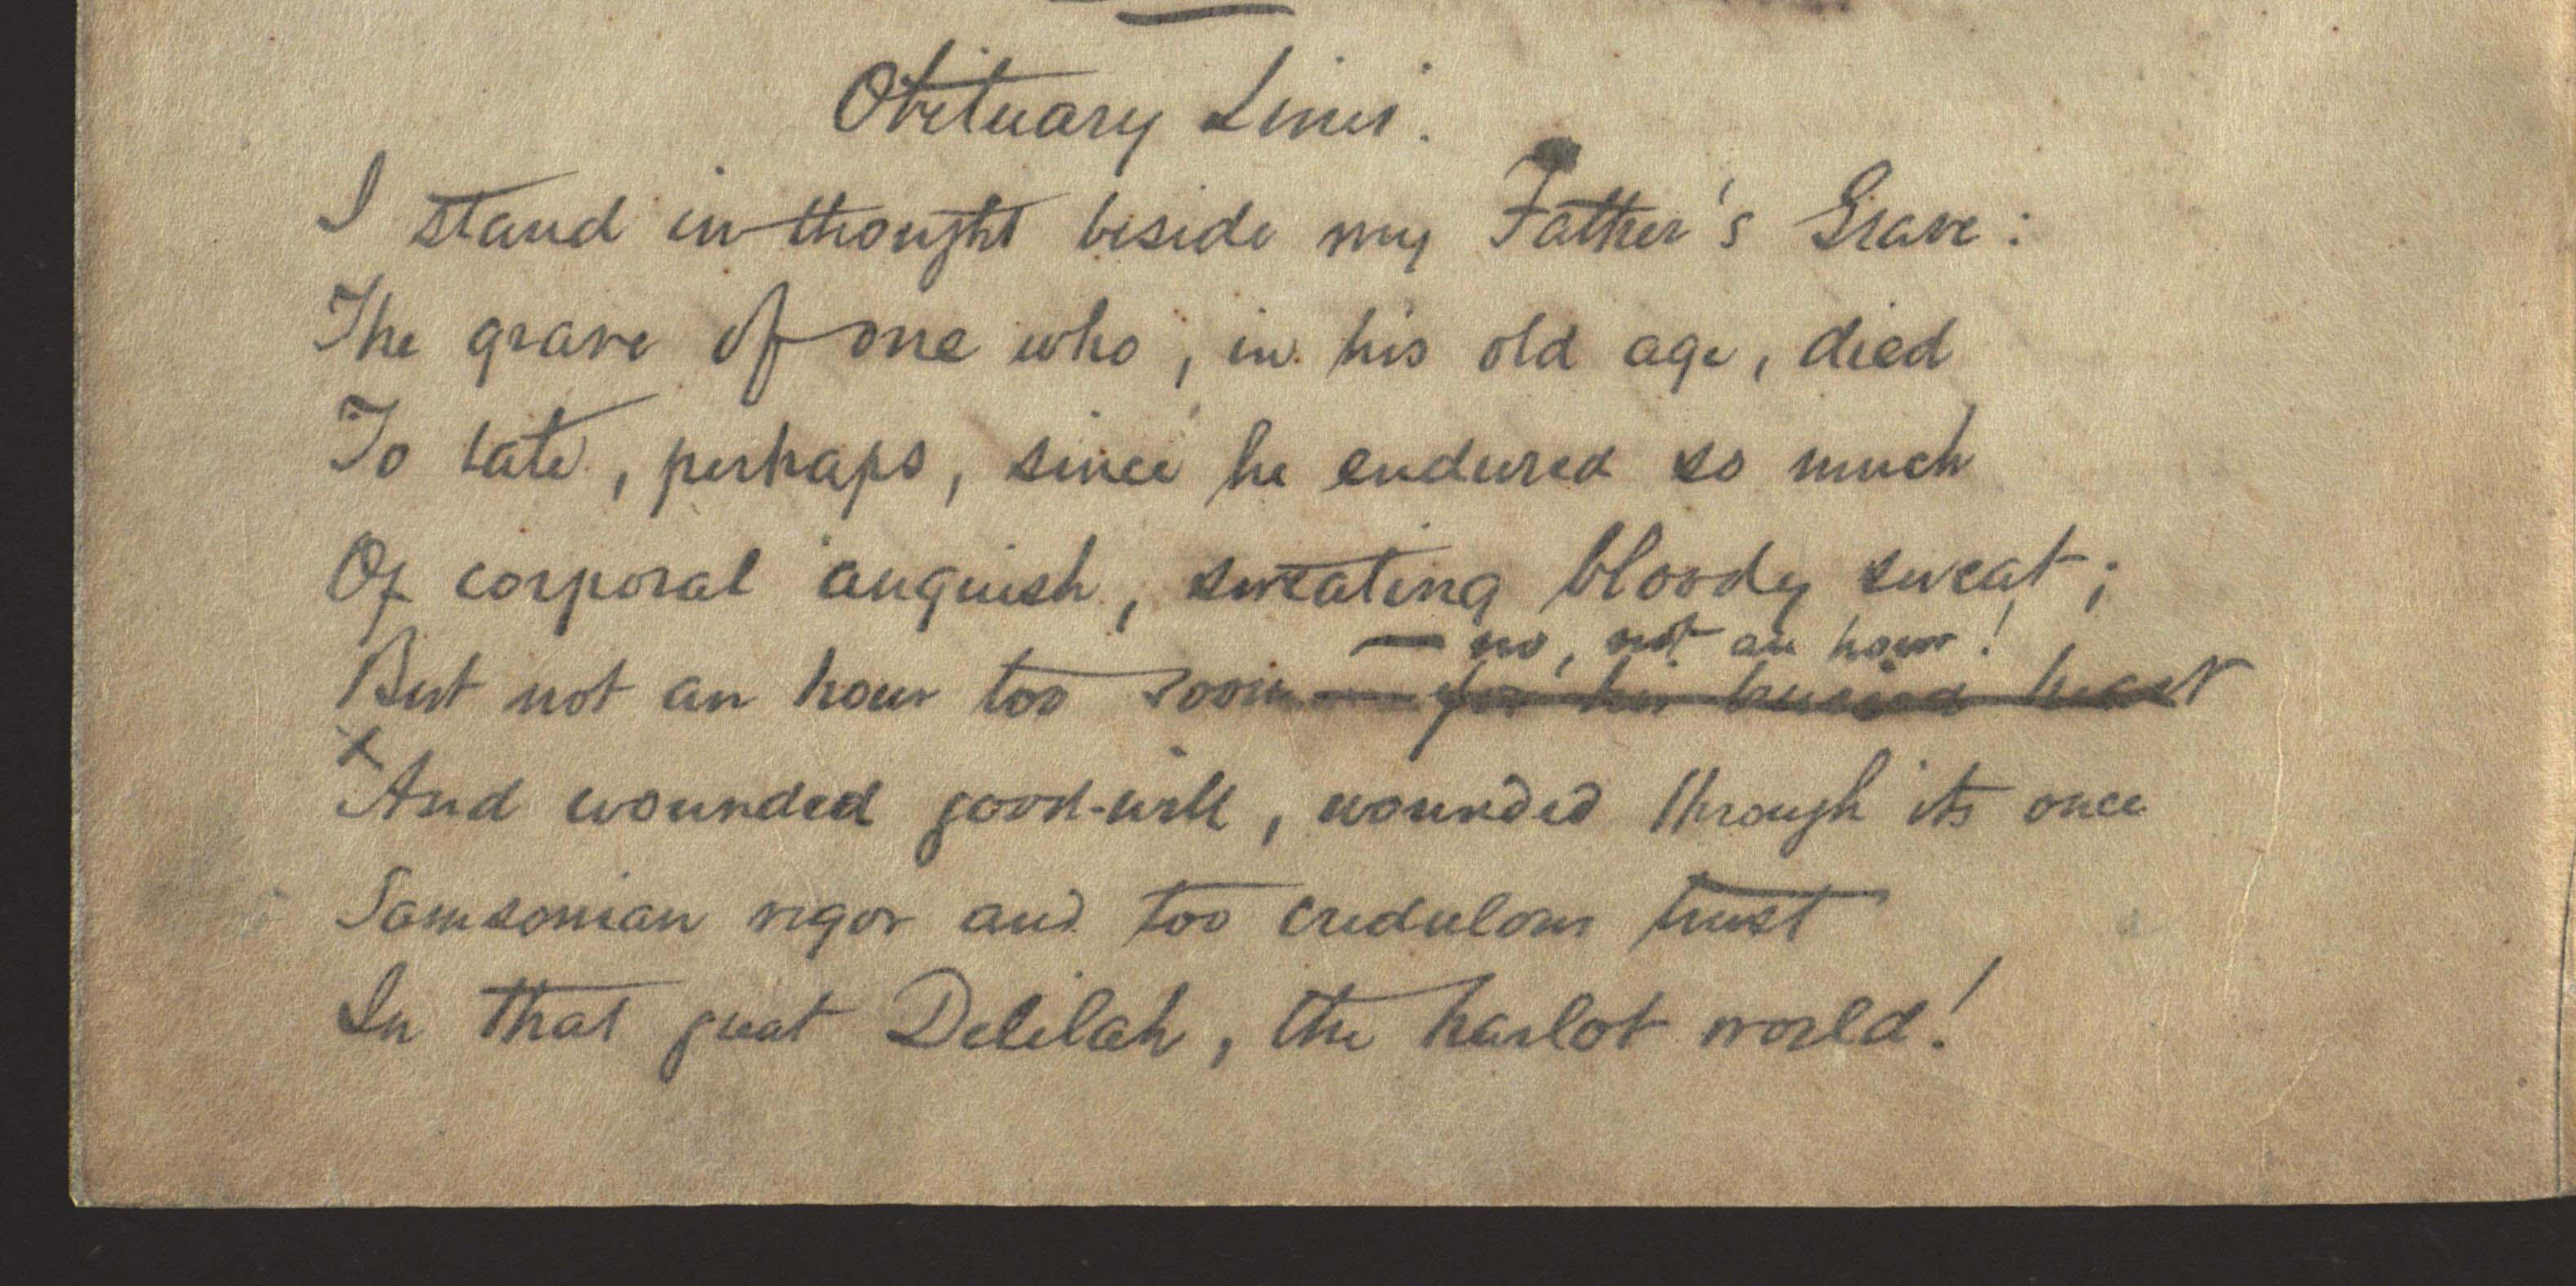 Obituary Lines.
I stand in thought beside my Father's Grave:
The grave of one who, in his old age, died
To late, perhaps, since he endured so much
Of corporal anguish, sweating bloody sweat;
— no, not an hour!
But not an hour too soon — for his buried heart
x
And wounded good-will, wounded through its once
Samsonian vigor and too credulous trust
In that great Delilah, the harlot world!